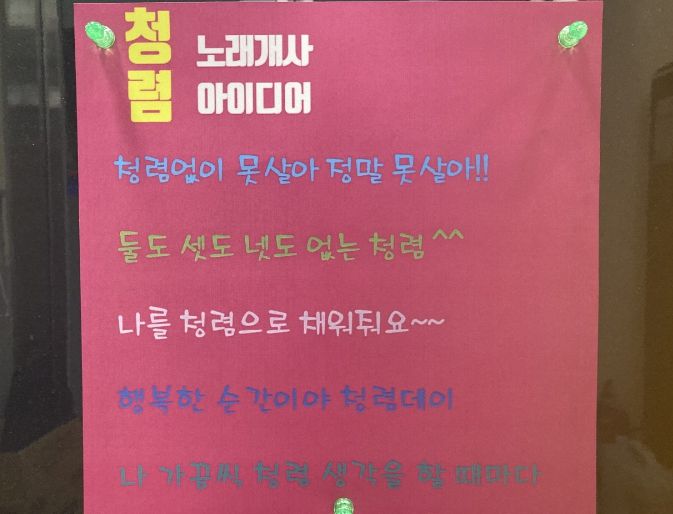 청렴 노래개사
아이디어
청렴없이 못살아 정말 못살아!!
둘도 셋도 넷도 없는 청렴^^
나를 청렴으로 채워줘요~~
행복한 순간이야 청렴데이
나 가끔씩 청렴 생각을 할 때마다